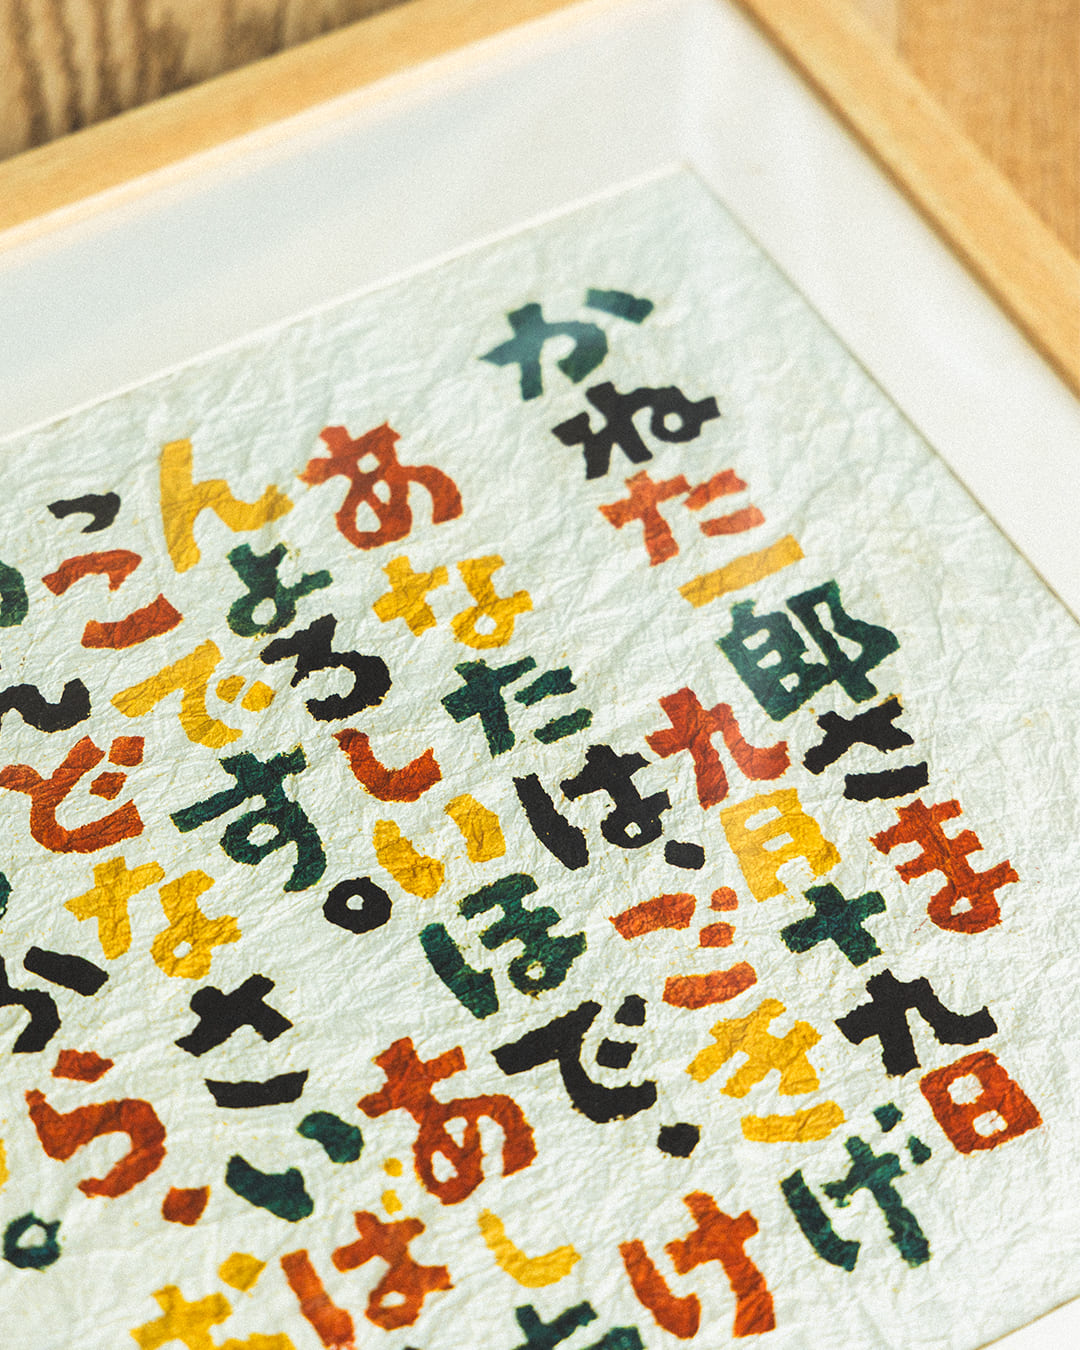 かねた一郎さま
九月十九日
あなたは、ごきげ
んよろしいほで、け
っこです。あし
んどなさいば
から、
。